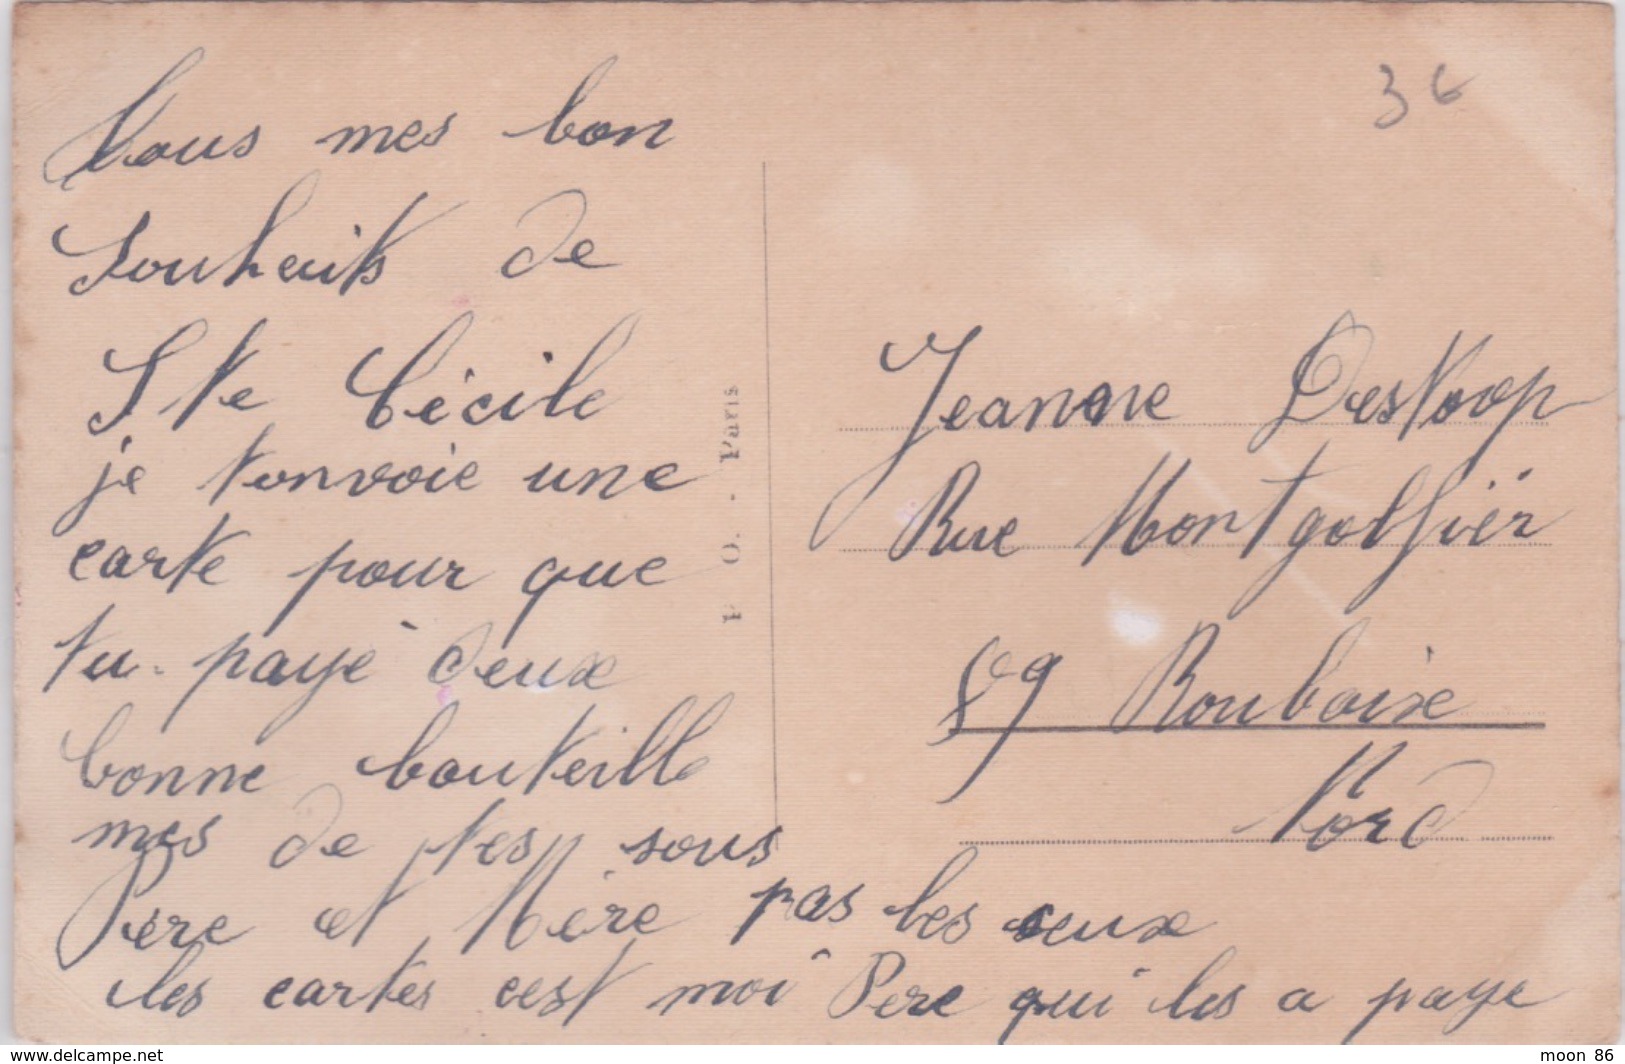 Tous mes bon
souhaits de
Ste Cécile
je tonvoie une
carte pour que
tu payé deux
bonne bouteille
mes de tes sous
Pere et Mère pas les ceux
les cartes cest moi Pere qui les a paye
P O. - Paris
36
Jeanne Desloop
Rue Montgolfier
59 Roubaix
Nord
www.delcampe.net
moon 86